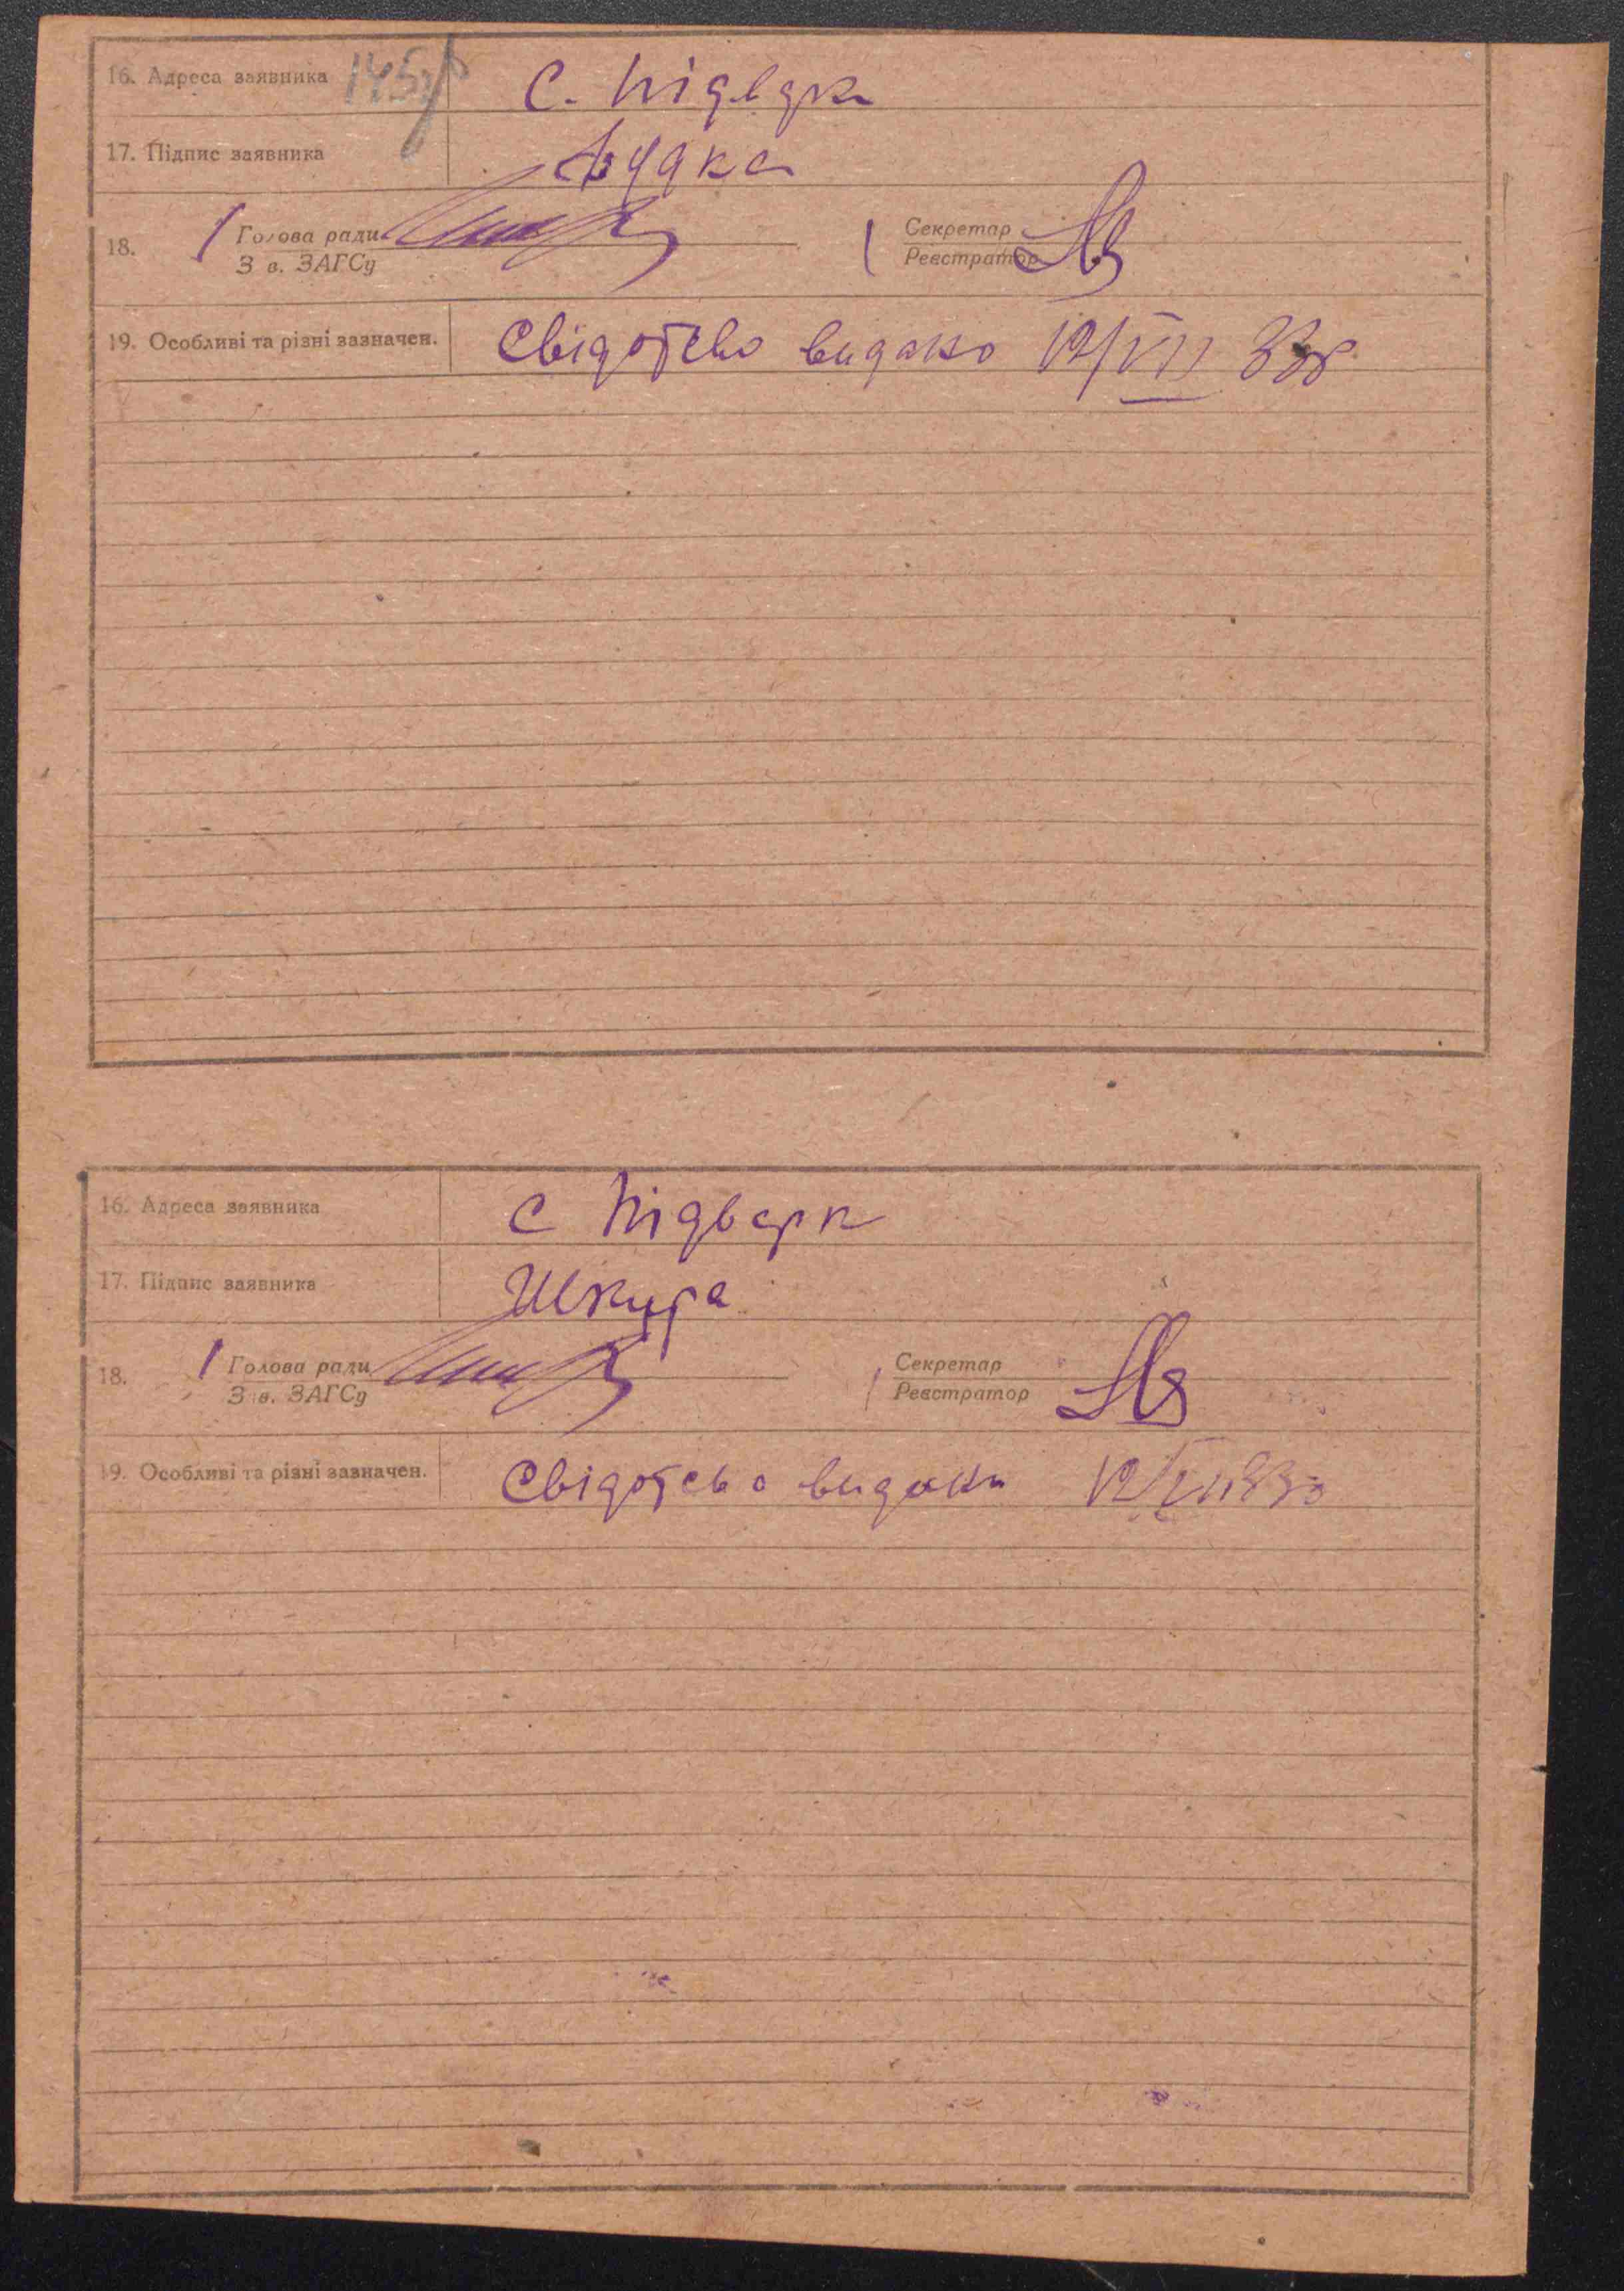 16. Адреса заявника 145зв С. Підварк
17. Підпис заявника
18. Голова ради Секретар
З в. ЗАГСу Реєстратор
19. Особливі та різні зазначен. Свідотство видано 12/VII 33р
16. Адреса заявника С Підварк
17. Підпис заявника Шкура
18. Голова ради Секретар
З в. ЗАГСу Реєстратор
19. Особливі та різні зазначен. Свідотсво видано 12/VII 33